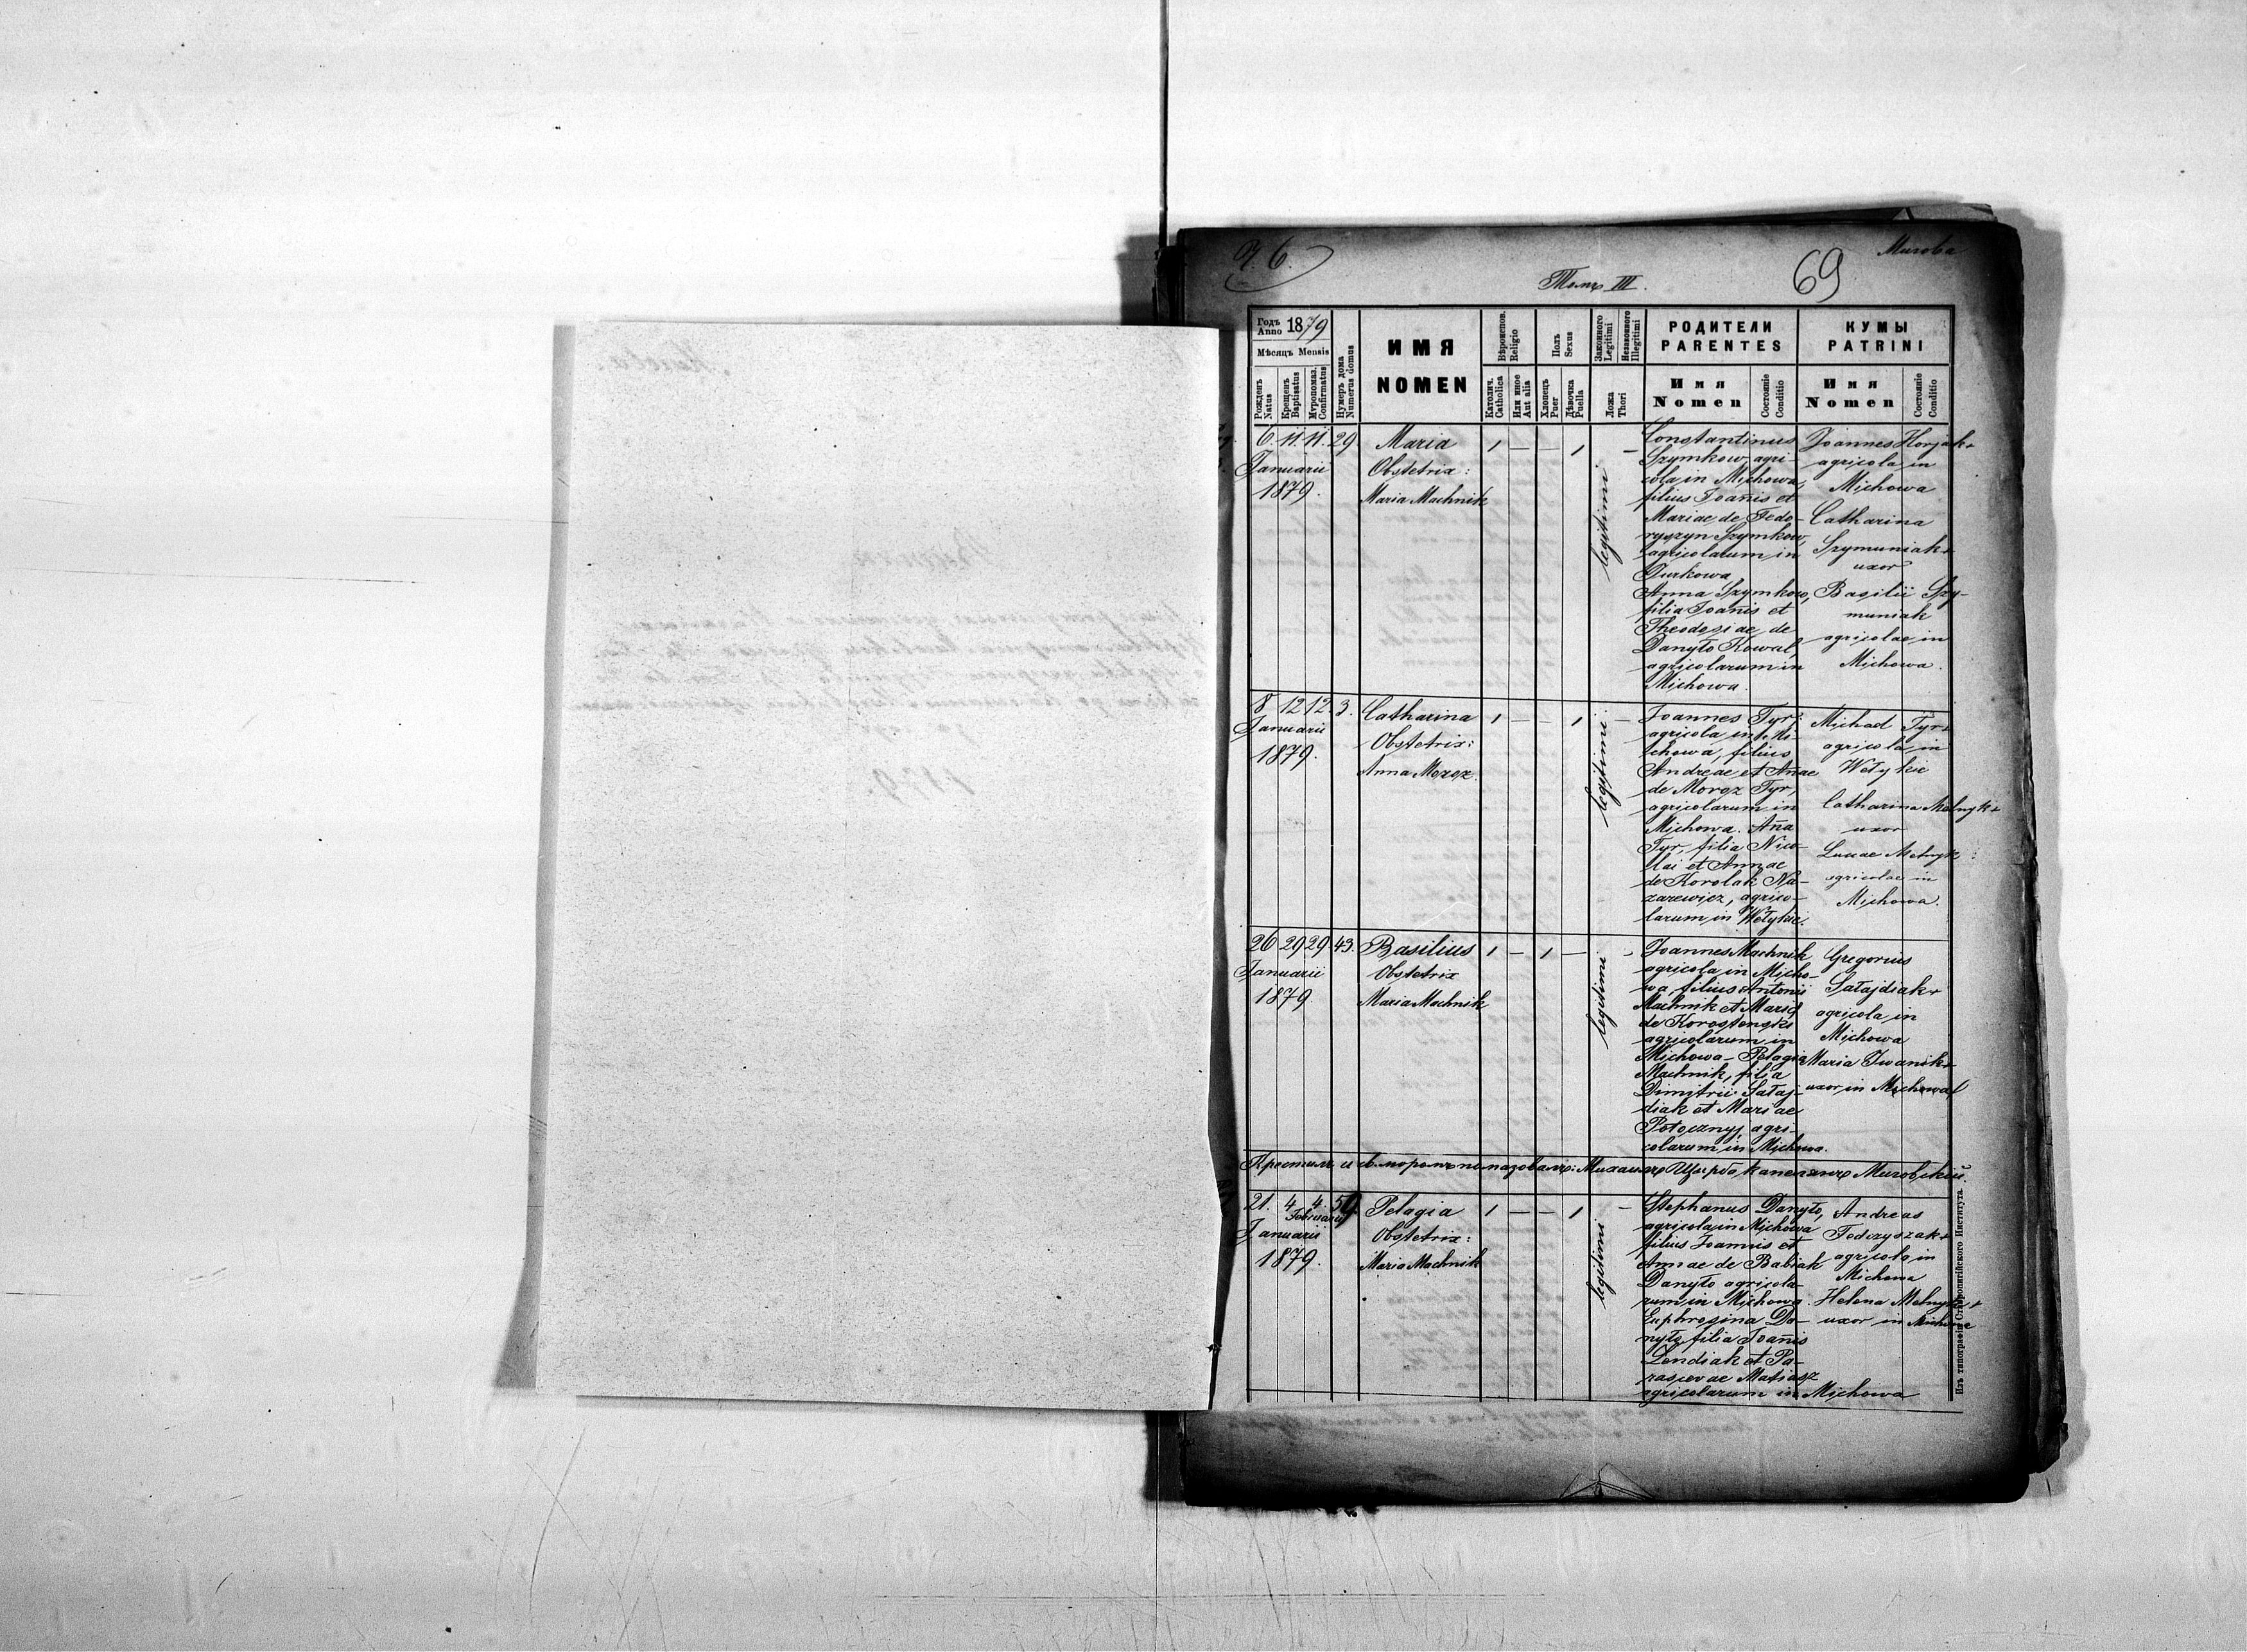 Ч. 6.
Томъ III.
69
Мигова
Годъ Anno 1879
Мѣсяцъ Mensis
Рожденъ Natus
Крещенъ Baptisatus
Мѵропомаз. Confirmatus
Нумеръ дома Numerus domus
ИМЯ
NOMEN
Вѣроисповѣд. Religio
Католич. Catholica
Или иное Aut alia
Полъ Sexus
Хлопецъ Puer
Дѣвочка Puella
Законного Legitimi
Незаконного Illegitimi
Ложа Thori
РОДИТЕЛИ
PARENTES
Имя
Nomen
Состояніе Conditio
КУМЫ
PATRINI
Имя
Nomen
Состояніе Conditio
6. 11. 11. 29
Januarii
1879.
Maria
Obstetrix:
Maria Machnik
1 — — 1 —
legitimi
Constantinus
Szymkow agri-
cola in Michowa,
filius Joañis et
Mariae de Fedo-
ryszyn Szymkow,
agricolarum in
Turkowa
Anna Szymkow,
filia Joañis et
Theodosiae de
Danyło Kowal,
agricolarum in
Michowa.
Joannes Horjak+
agricola in
Michowa
Catharina
Szymuniak+
uxor
Basilii Szy-
muniak
agricolae in
Michowa.
8 12 12. 3.
Januarii
1879.
Catharina
Obstetrix:
Anna Moroz.
1 — — 1 —
legitimi
Joannes Tyr,
agricola in Mi-
chowa, filius
Andreae et Añae
de Moroz Tyr,
agricolarum in
Michowa. Aña
Tyr, filia Nico-
lai et Annae
de Korolak Na-
zarewicz, agrico-
larum in Wełykie.
Michael Tyr+
agricola in
Wełykie
Catharina Melnyk+
uxor
Lucae Melnyk
agricolae in
Michowa.
26 29 29 43.
Januarii
1879
Basilius
Obstetrix
Maria Machnik
1 — 1 — —
legitimi
Joannes Machnik
agricola in Micho-
wa, filius Antonii
Machnik et Maria
de Korostenski
agricolarum in
Michowa – Pelagia
Machnik, filia
Dimitrii Sałaj-
diak et Mariae
Potocznyj agri-
colarum in Michowa.
Gregorius
Sałajdiak+
agricola in
Michowa
Maria Iwanik+
uxor in Michowa
Крестилъ и св. мѵромъ помазовалъ: Михаилъ Щерба, капеланъ Миговскій.
21. 4 4. 59
Februarii
Januarii
1879.
Pelagia
Obstetrix:
Maria Machnik
1 — — 1 —
legitimi
Stephanus Danyło,
agricola in Michowa
filius Joannis et
Annae de Babiak
Danyło agricola-
rum in Michowa.
Euphrosina Da-
nyło, filia Joañis
Lendiak et Pa-
rascevae Matiasz
agricolarum in Michowa
Andreas
Fedczyszak+
agricola in
Michowa
Helena Melnyk+
uxor in Michowa
Изъ типографіи Ставропигійского Института.